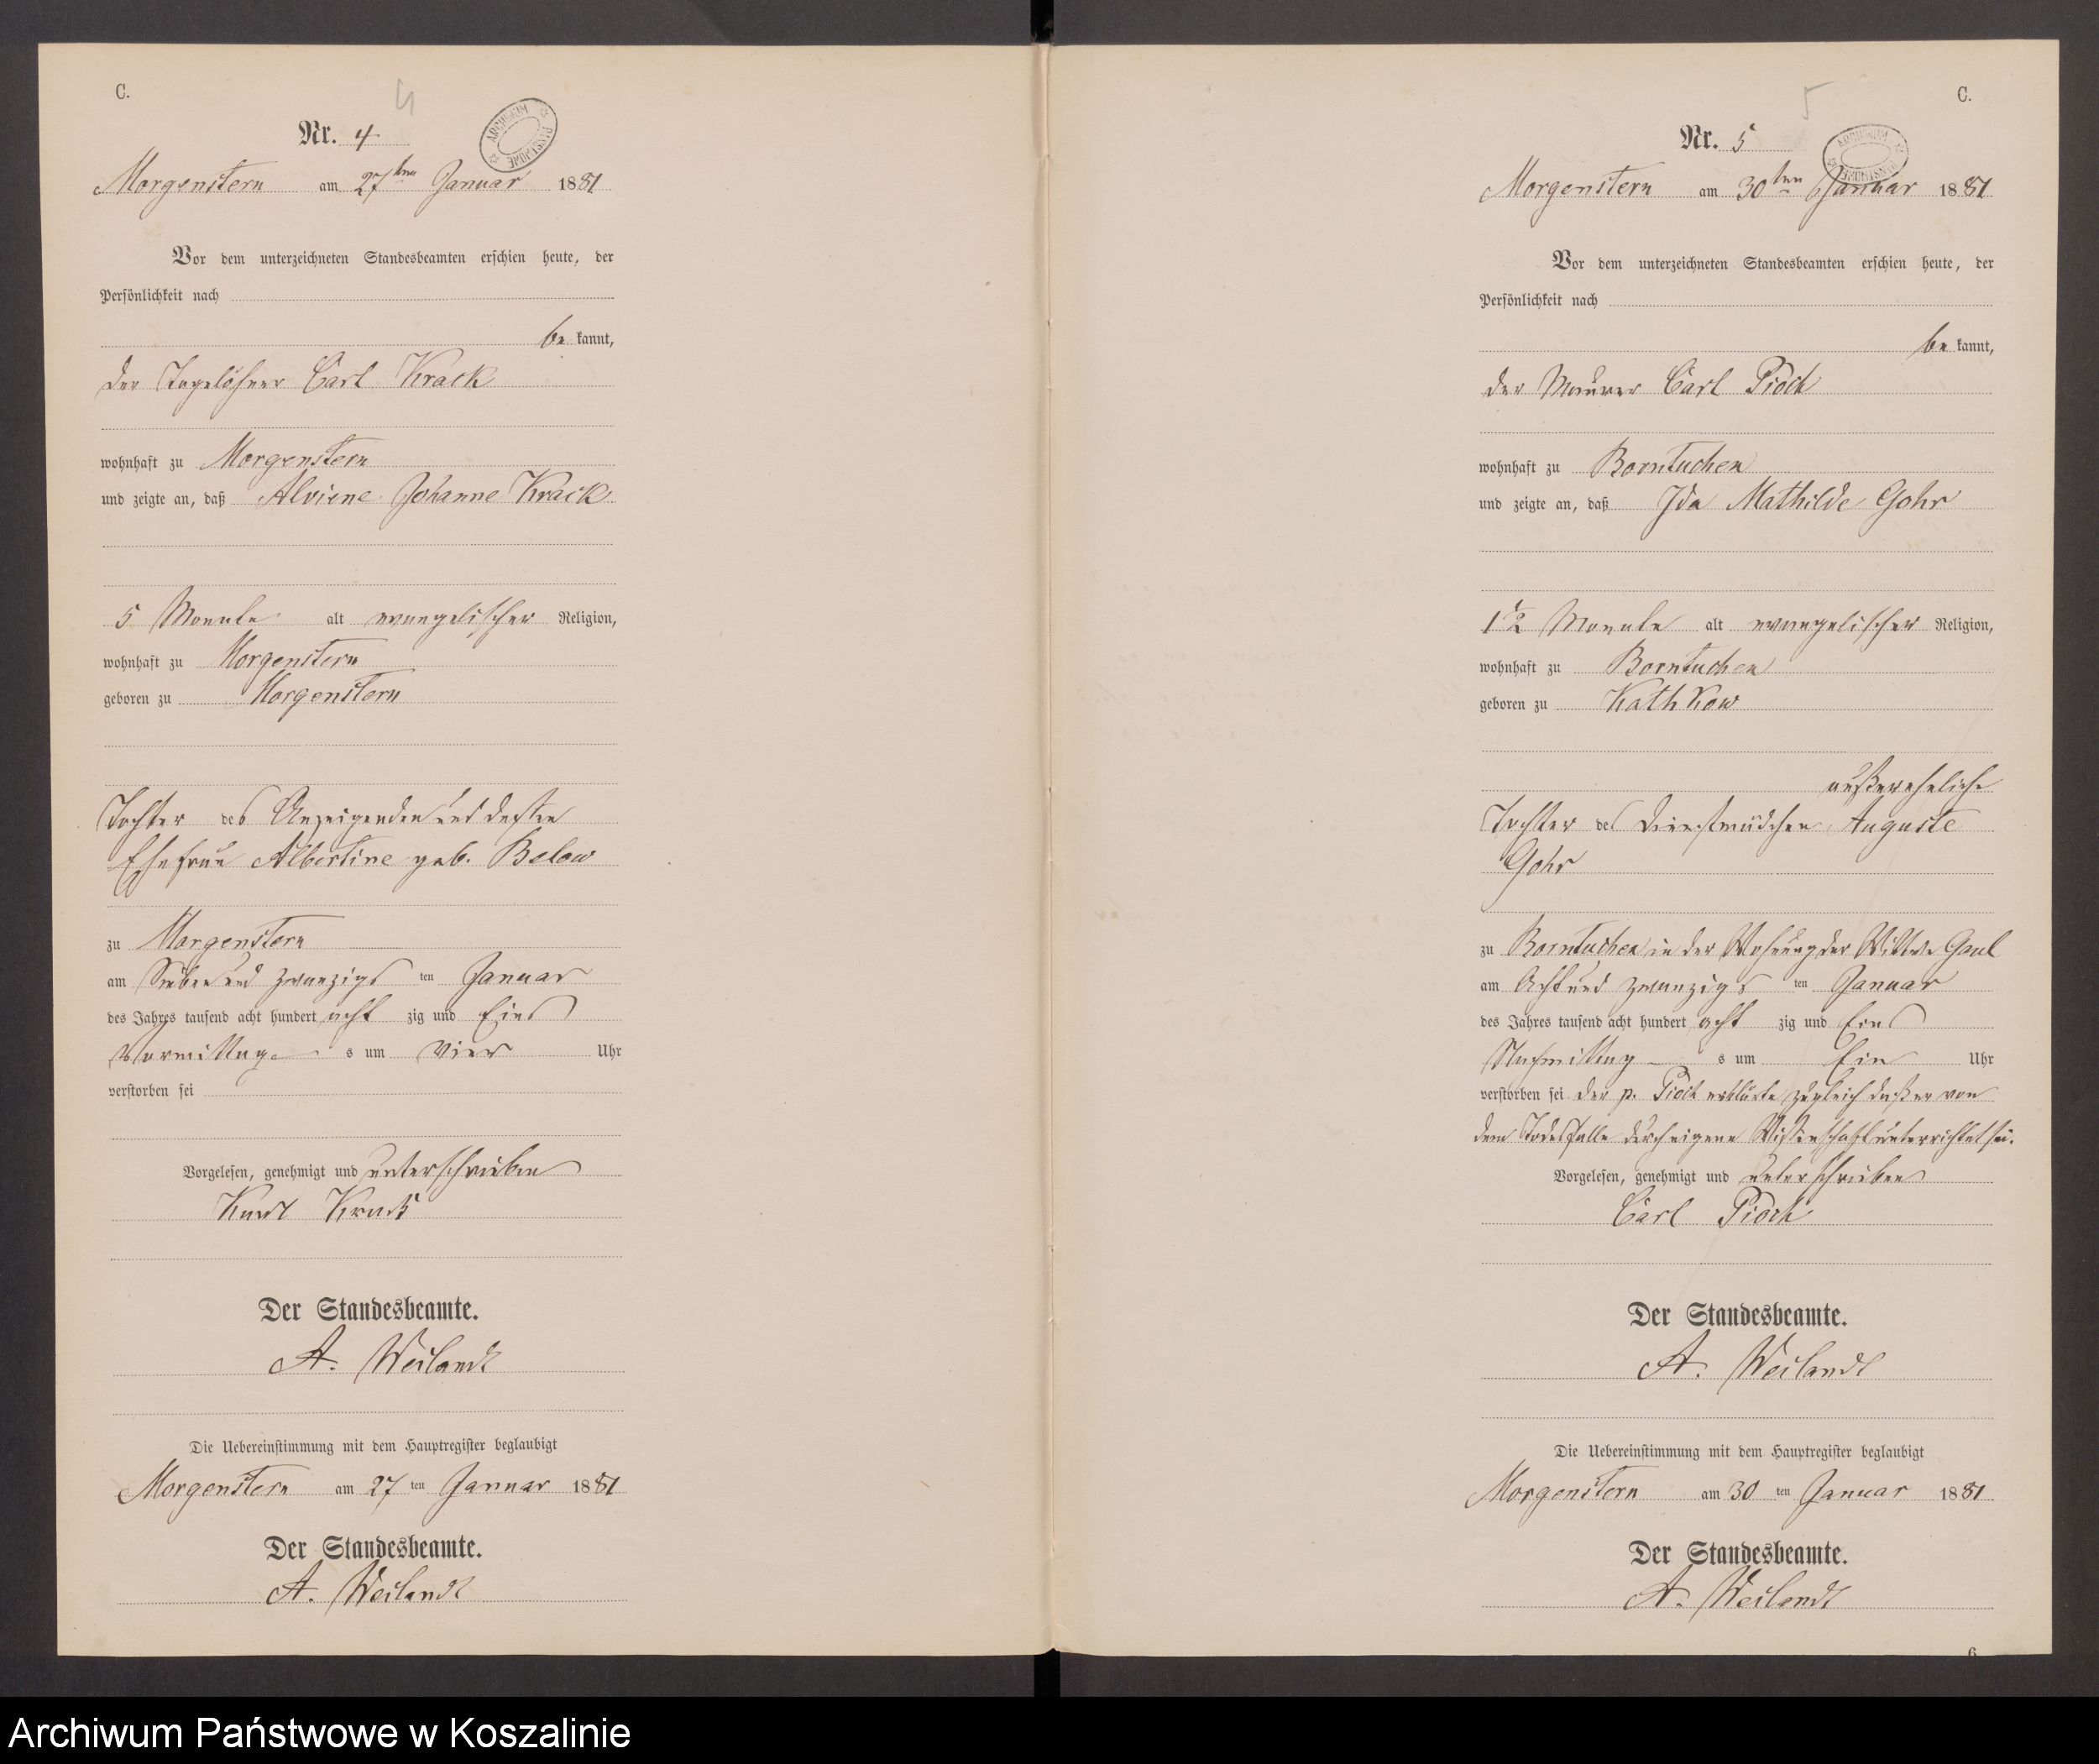 C.
4
Nr. 4
ARCHIWUM PAŃSTWOWE
Morgenstern am 27ten Januar 1881
Vor dem unterzeichneten Standesbeamten erschien heute, der
Persönlichkeit nach
be kannt,
der Tagelöhner Carl Krack
wohnhaft zu Morgenstern
und zeigte an, daß Alviene Johanne Krack
5 Monate alt evangelischer Religion,
wohnhaft zu Morgenstern
geboren zu Morgenstern
Tochter des Anzeigenden und dessen
Ehefrau Albertine geb. Below
zu Morgenstern
am Sieben und zwanzigs ten Januar
des Jahres tausend acht hundert acht zig und Eins
Vormittag s um Vier Uhr
verstorben sei
Vorgelesen, genehmigt und unterschrieben
Karl Krack
Der Standesbeamte.
A. Weilandt
Die Uebereinstimmung mit dem Hauptregister beglaubigt
Morgenstern am 27 ten Januar 1881
Der Standesbeamte.
A. Weilandt
C.
5
Nr. 5
ARCHIWUM PAŃSTWOWE
Morgenstern am 30ten Januar 1881
Vor dem unterzeichneten Standesbeamten erschien heute, der
Persönlichkeit nach
be kannt,
der Maurer Carl Pioch
wohnhaft zu Borntuchen
und zeigte an, daß Ida Mathilde Gohr
1½ Monate alt evangelischer Religion,
wohnhaft zu Borntuchen
geboren zu Kathkow
außereheliche
Tochter des Dienstmädchen Auguste
Gohr
zu Borntuchen in der Wohnung der Wittwe Gaul
am Acht und zwanzigs ten Januar
des Jahres tausend acht hundert acht zig und Eins
Nachmittag s um Ein Uhr
verstorben sei der p. Pioch erklärte zugleich daß er von
dem Todesfalle durch eigene Wissenschaft unterrichtet sei.
Vorgelesen, genehmigt und unterschrieben
Carl Pioch
Der Standesbeamte.
A. Weilandt
Die Uebereinstimmung mit dem Hauptregister beglaubigt
Morgenstern am 30 ten Januar 1881
Der Standesbeamte.
A. Weilandt
6
Archiwum Państwowe w Koszalinie